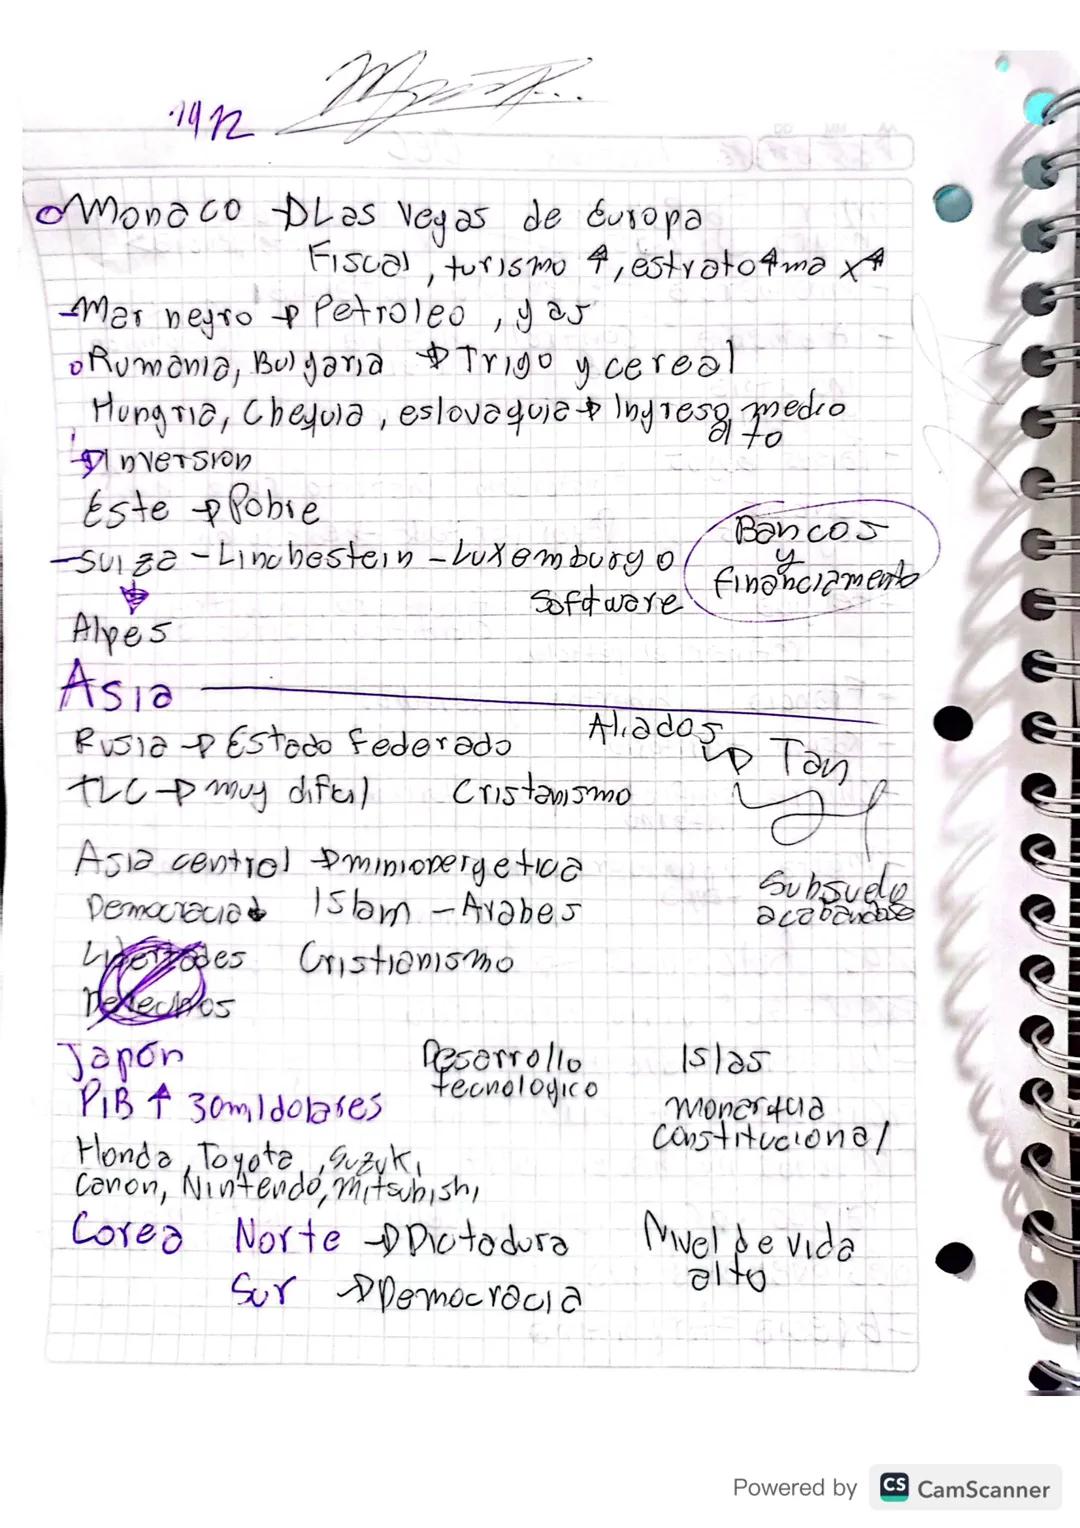 Monaco → Las Vegas de Europa
Fiscal, turismo ↑, estrato
- Mar negro → Petroleo, gas
Rumania, Bulgaria → Trigo y cereal
Hungria, Chequia, eslovaquia → Ingreso medio
alto
→ Inversion
Este → Pobre
- Suiza - Linchestein - Luxemburgo
Bancos
y
financiamento
software
Alpes
Asia
Rusia → Estado federado
Aliados
↳ Tan
TLC → muy dificil
Cristanismo
Asia central → minionergetica
Democracia
Islam - Arabes
Subsuelo
acabandose
Libertades
Cristianismo
Derechos
Japón
Desarrollo
tecnologico
Islas
PIB ↑ 30mil dolares
monarquia
constitucional
Honda, Toyota, Suzuki,
Canon, Nintendo, Mitsubishi
Corea Norte → Dictadura
Nivel de vida
alto
Sur → Democracia
Powered by CS CamScanner